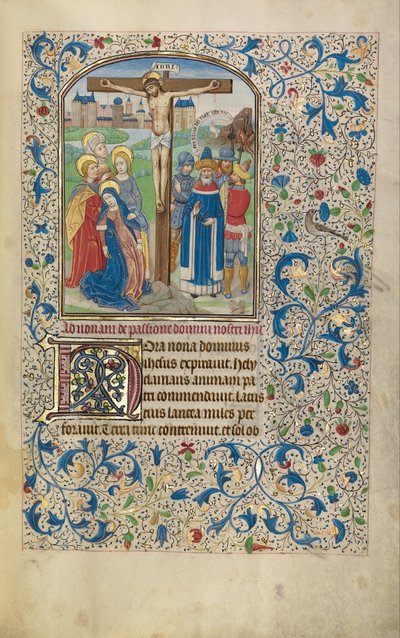 INRI
Ad nonam de passione domini nostri
Hora nona dominus
ihesus expiravit. hely
clamans animam pa
tri commendavit. latus
eius lancea miles per
foravit. Terra tunc contremuit. et sol ob